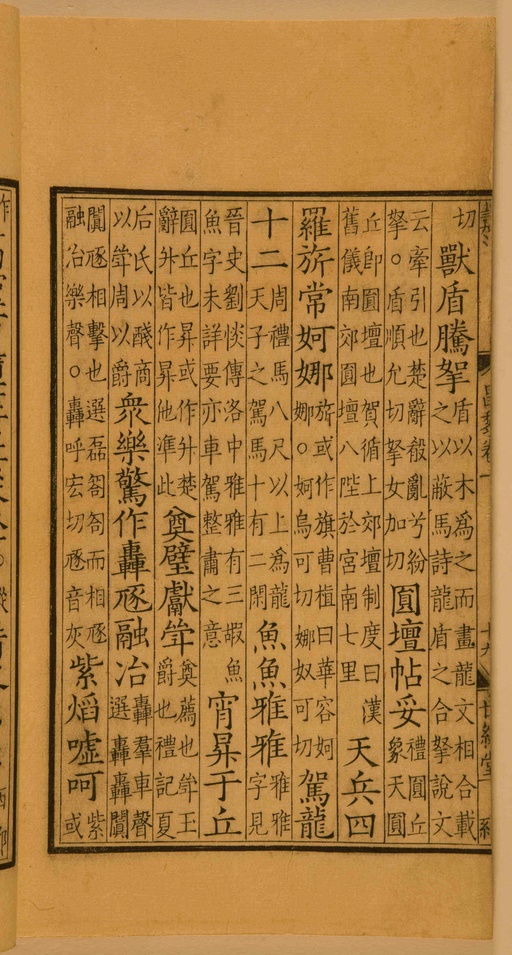 切獸盾騰拏盾以木爲之而畫龍文相合載之以蔽馬詩龍盾之合拏說文
云牽引也楚辭殽亂兮紛拏○盾順允切拏女加切圓壇帖妥禮圓丘象天圓
丘即圜壇也賀循上郊壇制度曰漢舊儀南郊圓壇八陛於宮南七里天兵四
羅旂常妸娜旂或作旗曹植曰華容妸娜○妸烏可切娜奴可切駕龍
十二周禮馬八尺以上爲龍天子之駕馬十有二閑魚魚雅雅雅雅字見
晉史劉惔傳洛中雅雅有三嘏魚魚字未詳要亦車駕整肅之意宵昇于丘
圓丘也昇或作升楚辭升皆作昇他準此奠璧獻斝奠薦也斝王爵也禮記夏
后氏以醆商以斝周以爵衆樂驚作轟豗融冶轟羣車聲選轟轟闐
闐豗相擊也選磊匒匌而相豗融冶樂聲○轟呼宏切豗音灰紫焰噓呵紫或